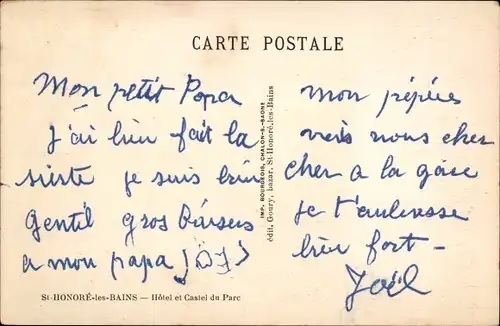 CARTE POSTALE
Mon petit Papa
J'ai bien fait la
sieste je suis bien
gentil gros baisers
a mon papa
mon pépées
nous cher
cher a la gare
je t'embrasse
bien fort -
Joël
IMP. BOURGEOIS, CHALON-S.-SAONE
édit. Goury, bazar, St-Honoré-les-Bains
St-HONORÉ-les-BAINS — Hôtel et Castel du Parc